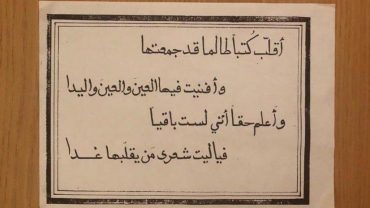 أقلّب كُتباً طالما قد جمعتها
وأفنيت فيها العين والعين واليدا
وأعلم حقاً أنني لست باقياً
فياليت شعرى مَن يقلبها غدا